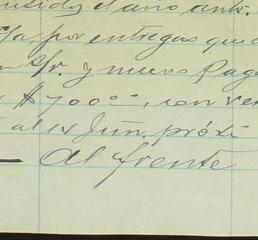 el año ant.
c/a por entregas que
Sr. y nuevo Paga
$700°°, con ven
al 1x Jun. próxi
Al frente